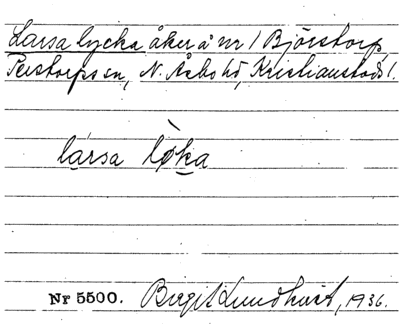 Larsa lycka åker å nr 1 Björstorp,
Perstorps sn, N. Åsbo hd, Kristianstads l.
lársa lø̀ka
Nr 5500. Birgit Lundkvist, 1936.